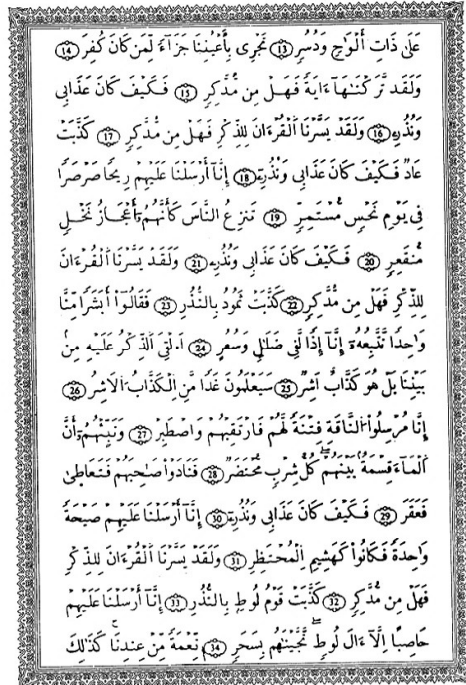 عَلَىٰ ذَاتِ أَلْوَٰحٍ وَدُسُرٍ 13 تَجْرِى بِأَعْيُنِنَا جَزَآءً لِّمَن كَانَ كُفِرَ 14
وَلَقَد تَّرَكْنَٰهَآ ءَايَةً فَهَلْ مِن مُّدَّكِرٍ 15 فَكَيْفَ كَانَ عَذَابِى
وَنُذُرِۦ 16 وَلَقَدْ يَسَّرْنَا اَ۬لْقُرْءَانَ لِلذِّكْرِ فَهَلْ مِن مُّدَّكِرٍ 17 كَذَّبَتْ
عَادٌ فَكَيْفَ كَانَ عَذَابِى وَنُذُرِۦٓ 18 إِنَّآ أَرْسَلْنَا عَلَيْهِمْ رِيحًا صَرْصَرًا
فِى يَوْمِ نَحْسٍ مُّسْتَمِرٍّ 19 تَنزِعُ النَّاسَ كَأَنَّهُمُۥٓ أَعْجَازُ نَخْلٍ
مُّنقَعِرٍ 20 فَكَيْفَ كَانَ عَذَابِى وَنُذُرِۦ 21 وَلَقَدْ يَسَّرْنَا اَ۬لْقُرْءَانَ
لِلذِّكْرِ فَهَلْ مِن مُّدَّكِرٍ 22 كَذَّبَتْ ثَمُودُ بِالنُّذُرِ 23 فَقَالُوٓا۟ أَبَشَرًا مِّنَّا
وَٰحِدًا نَّتَّبِعُهُۥٓ إِنَّآ إِذًا لَّفِى ضَلَٰلٍ وَسُعُرٍ 24 أَ۟لْقِىَ اَ۬لذِّكْرُ عَلَيْهِ مِنۢ
بَيْنِنَا بَلْ هُوَ كَذَّابٌ أَشِرٌ 25 سَيَعْلَمُونَ غَدًا مَّنِ اِ۬لْكَذَّابُ الْأَشِرُ 26
إِنَّا مُرْسِلُوا۟ النَّاقَةِ فِتْنَةً لَّهُمْ فَارْتَقِبْهُمْ وَاصْطَبِرْ 27 وَنَبِّئْهُمُۥٓ أَنَّ
اَ۬لْمَآءَ قِسْمَةٌۢ بَيْنَهُمْ كُلُّ شِرْبٍ مُّحْتَضَرٌ 28 فَنَادَوْا۟ صَٰحِبَهُمْ فَتَعَاطَىٰ
فَعَقَرَ 29 فَكَيْفَ كَانَ عَذَابِى وَنُذُرِۦٓ 30 إِنَّآ أَرْسَلْنَا عَلَيْهِمْ صَيْحَةً
وَٰحِدَةً فَكَانُوا۟ كَهَشِيمِ اِ۬لْمُحْتَظِرِ 31 وَلَقَدْ يَسَّرْنَا اَ۬لْقُرْءَانَ لِلذِّكْرِ
فَهَلْ مِن مُّدَّكِرٍ 32 كَذَّبَتْ قَوْمُ لُوطٍۭ بِالنُّذُرِ 33 إِنَّآ أَرْسَلْنَا عَلَيْهِمْ
حَاصِبًا اِلَّآ ءَالَ لُوطٍ نَّجَّيْنَٰهُم بِسَحَرٍ 34 نِّعْمَةً مِّنْ عِندِنَا كَذَٰلِكَ